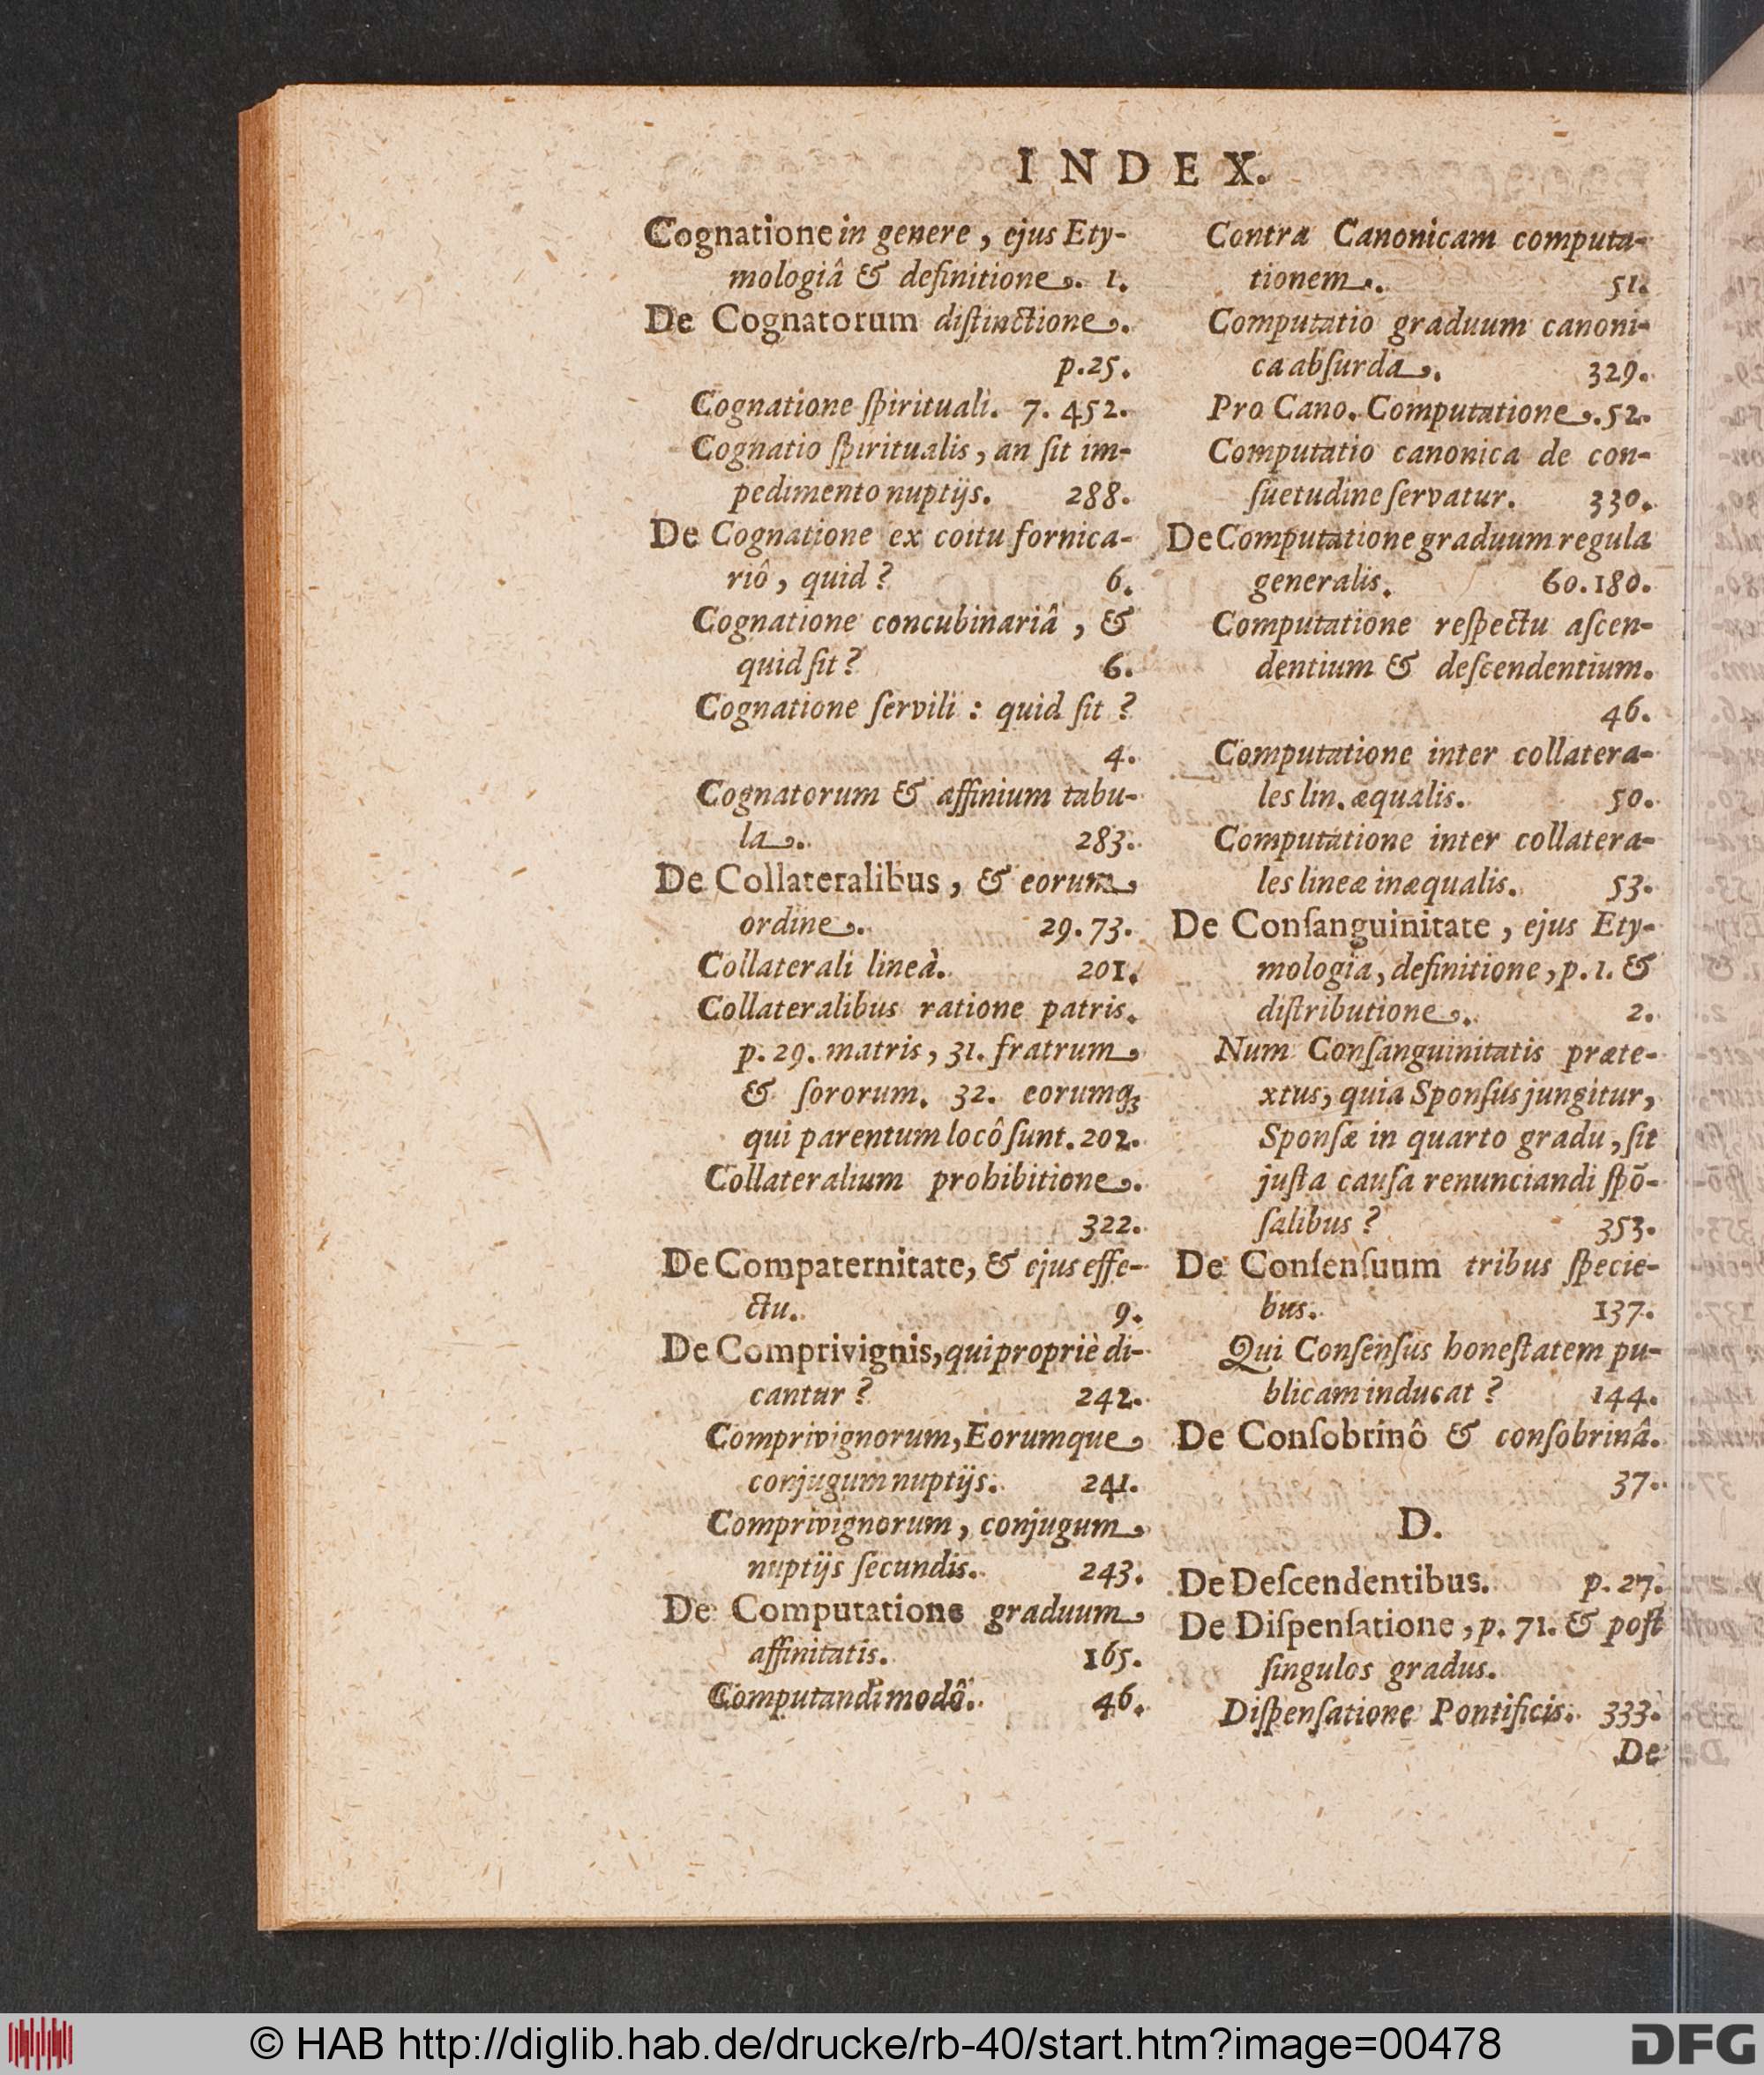 INDEX.
Cognatione in genere, ejus Ety-
mologiâ & definitione. 1.
De Cognatorum diſtinctione.
p. 25.
Cognatione ſpirituali. 7. 452.
Cognatio ſpiritualis, an ſit im-
pedimento nuptijs. 288.
De Cognatione ex coitu fornica-
riô, quid? 6.
Cognatione concubinariâ, &
quid ſit? 6.
Cognatione ſervili: quid ſit?
4.
Cognatorum & affinium tabu-
la. 283.
De Collateralibus, & eorum
ordine. 29. 73.
Collaterali lineâ. 201.
Collateralibus ratione patris.
p. 29. matris, 31. fratrum
& ſororum. 32. eorumq;
qui parentum locô ſunt. 202.
Collateralium prohibitione.
322.
De Compaternitate, & ejus effe-
ctu. 9.
De Comprivignis, qui propriè di-
cantur? 242.
Comprivignorum, Eorumque
conjugum nuptijs. 241.
Comprivignorum, conjugum
nuptijs ſecundis. 243.
De Computatione graduum
affinitatis. 165.
Computandi modô. 46.
Contra Canonicam computa-
tionem. 51.
Computatio graduum canoni-
ca abſurda. 329.
Pro Cano. Computatione. 52.
Computatio canonica de con-
ſuetudine ſervatur. 330.
De Computatione graduum regula
generalis. 60. 180.
Computatione reſpectu aſcen-
dentium & deſcendentium.
46.
Computatione inter collatera-
les lin. æqualis. 50.
Computatione inter collatera-
les lineæ inæqualis. 53.
De Conſanguinitate, ejus Ety-
mologia, definitione, p. 1. &
diſtributione. 2.
Num Conſanguinitatis præte-
xtus, quia Sponſus jungitur,
Sponſæ in quarto gradu, ſit
juſta cauſa renunciandi ſpō-
ſalibus? 353.
De Conſenſuum tribus ſpecie-
bus. 137.
Qui Conſenſus honeſtatem pu-
blicam inducat? 144.
De Conſobrinô & conſobrinâ.
37.
D.
De Deſcendentibus. p. 27.
De Diſpenſatione, p. 71. & poſt
ſingulos gradus.
Diſpenſatione Pontificis. 333.
De
© HAB http://diglib.hab.de/drucke/rb-40/start.htm?image=00478
DFG